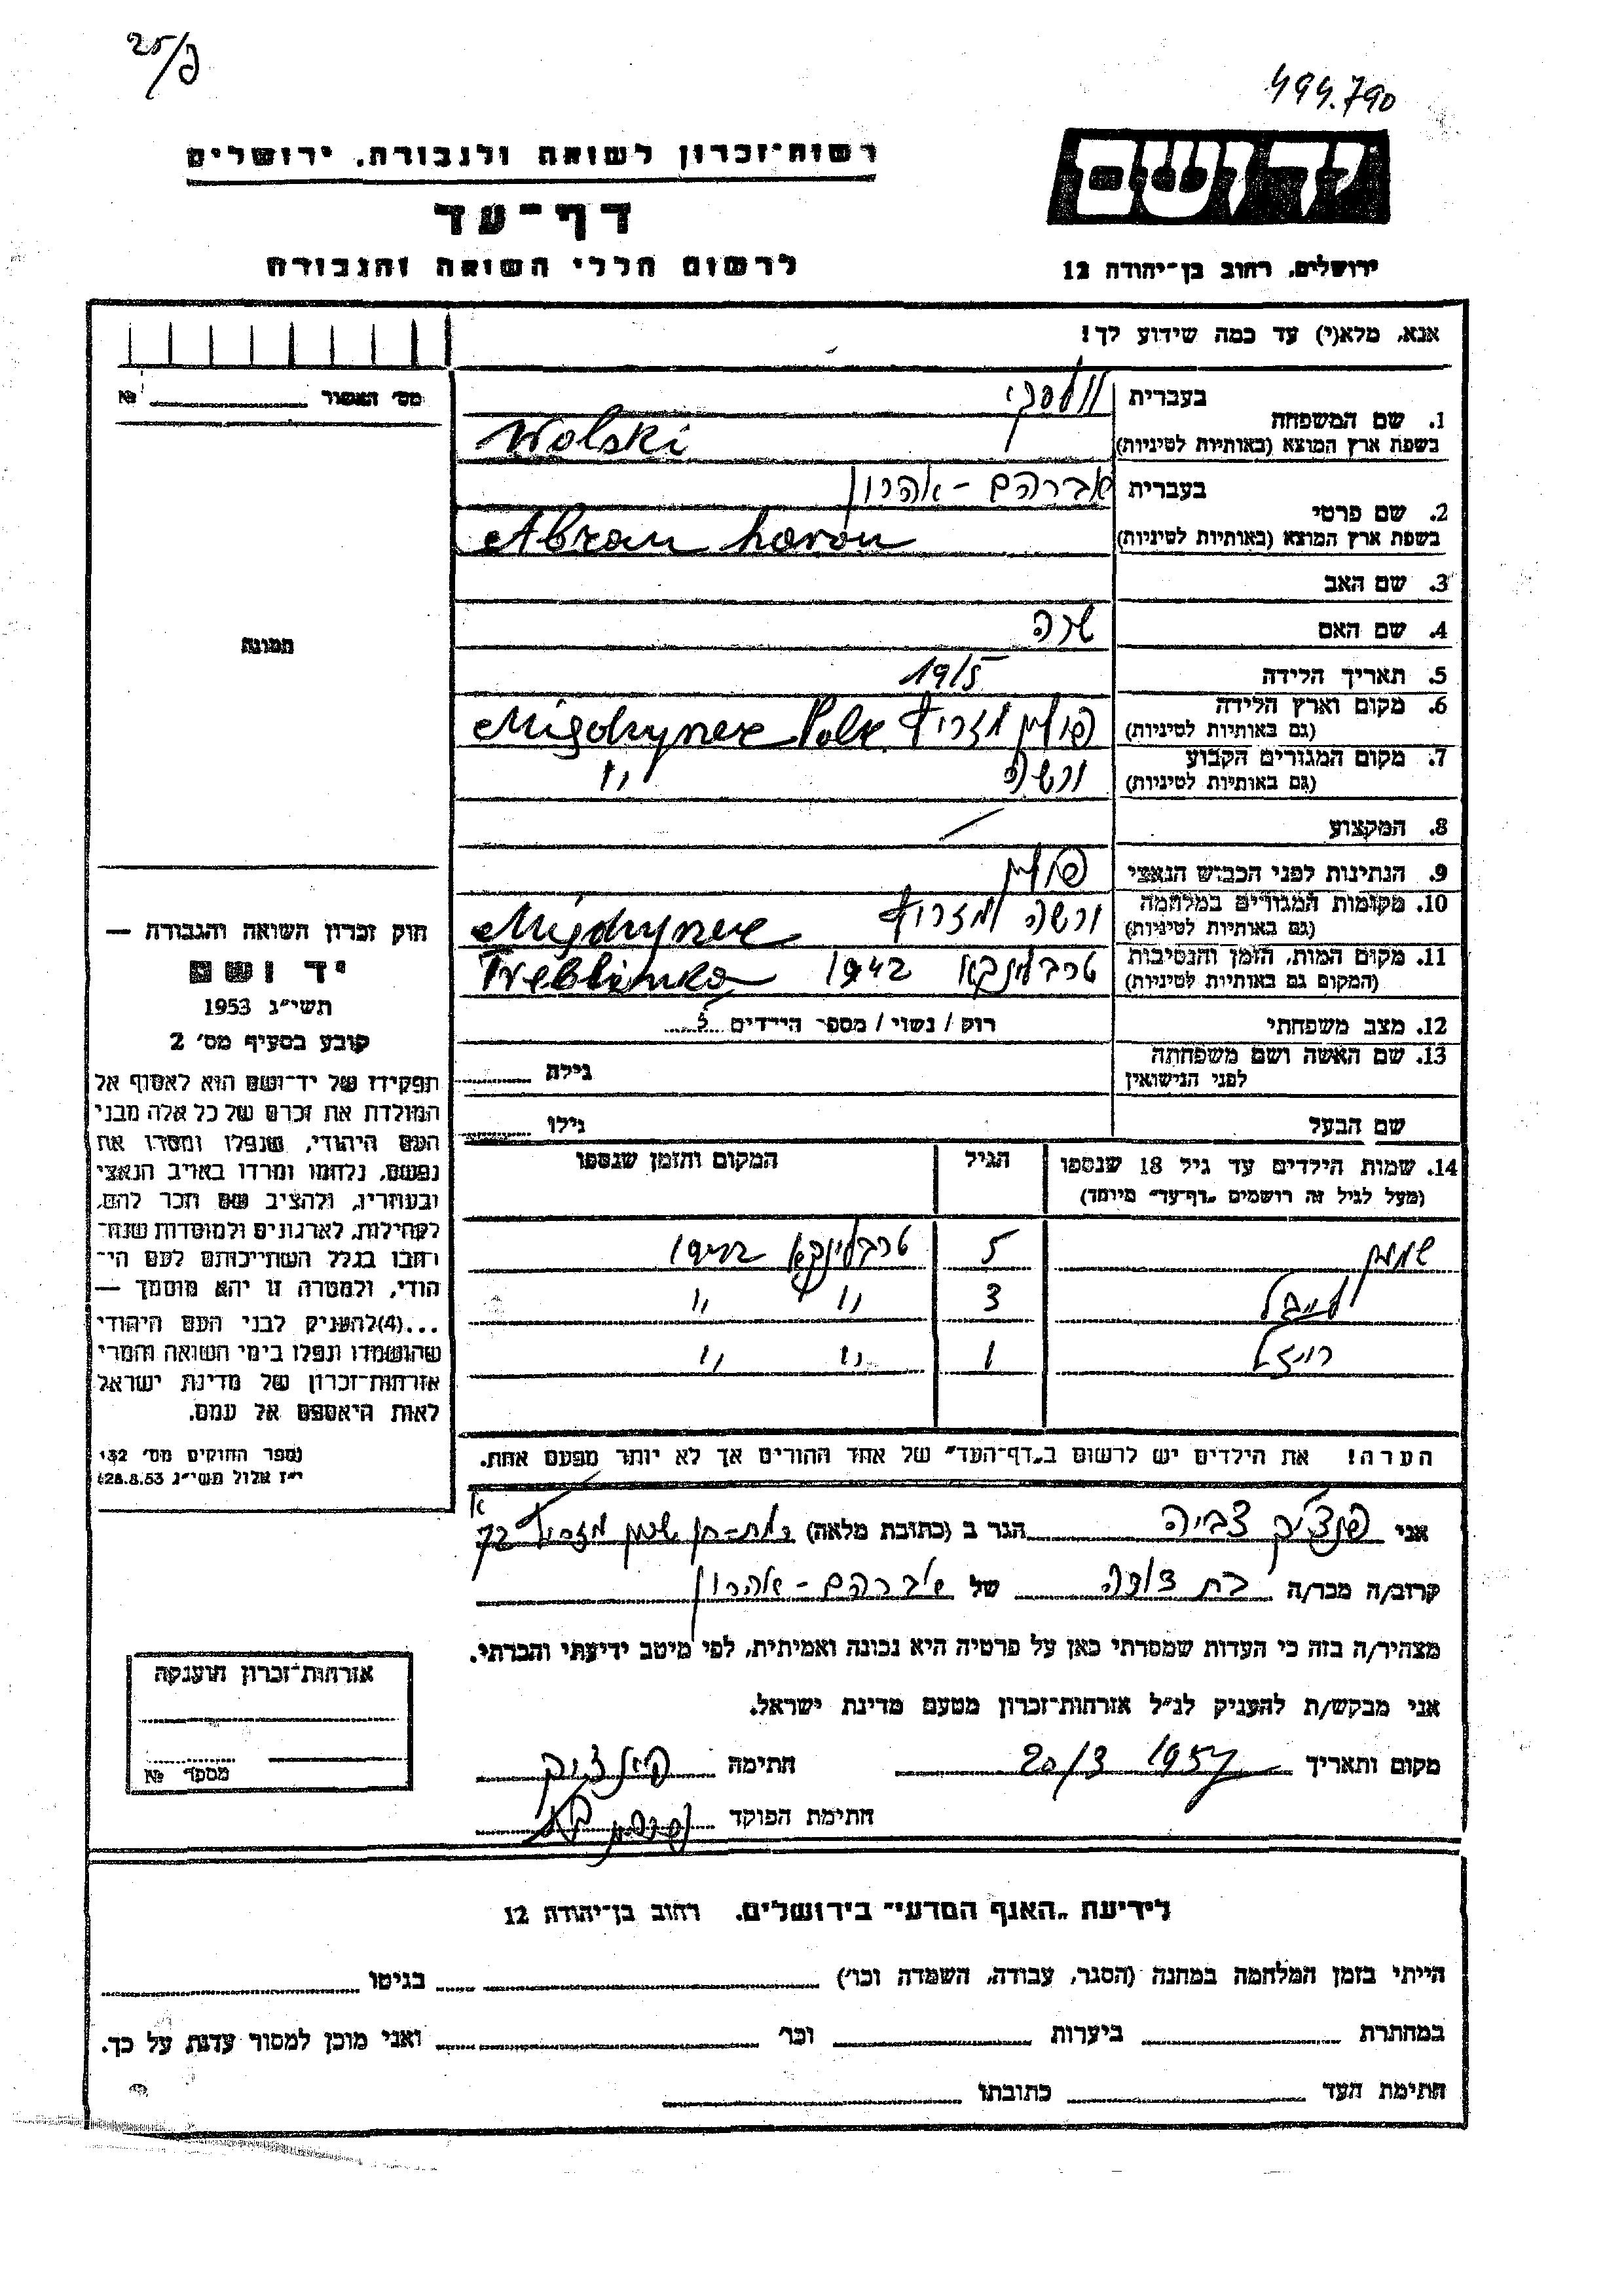 25/פ
494.790
רשות־זכרון לשואה ולגבורה, ירושלים
יד ושם
דף־עד
לרשום חללי השואה והגבורה
ירושלים, רחוב בן־יהודה 12
אנא, מלא(י) עד כמה שידוע לך!
מס׳ האשור № 
1. שם המשפחה
בעברית וולסקי
בשפת ארץ המוצא (באותיות לטיניות) Wolski
2. שם פרטי
בעברית אברהם - אהרון
בשפת ארץ המוצא (באותיות לטיניות) Abram haron
3. שם האב
4. שם האם שרה
5. תאריך הלידה 1915
6. מקום וארץ הלידה
(גם באותיות לטיניות) פולין מזריץ
7. מקום המגורים הקבוע
(גם באותיות לטיניות) ורשה "
8. המקצוע
9. הנתינות לפני הכבוש הנאצי פולין
10. מקומות המגורים במלחמה
(גם באותיות לטיניות) ורשה מזריץ
11. מקום המות, הזמן והנסיבות
(המקום גם באותיות לטיניות) טרבלינקא 1942 Treblinka
12. מצב משפחתי רווק / נשוי / מספר הילדים
13. שם האשה ושם משפחתה
לפני הנישואין גילה
שם הבעל גילו
14. שמות הילדים עד גיל 18 שנספו הגיל המקום והזמן שנספו
(מעל לגיל זה רושמים „דף־עד״ מיוחד)
5 טרבלינקא 1942
לייבל 3 " "
רויזל 1 " "
הערה! את הילדים יש לרשום ב„דף־העד״ של אחד ההורים אך לא יותר מפעם אחת.
תמונה
חוק זכרון השואה והגבורה —
יד ושם
תשי״ג 1953
קובע בסעיף מס׳ 2
תפקידו של יד־ושם הוא לאסוף אל
המולדת את זכרם של כל אלה מבני
העם היהודי, שנפלו ומסרו את
נפשם, נלחמו ומרדו באויב הנאצי
ובעוזריו, ולהציב שם וזכר להם,
לקהילות, לארגונים ולמוסדות שנח־
רבו בגלל השתייכותם לעם הי־
הודי, ולמטרה זו יהא מוסמך —
...(4)להעניק לבני העם היהודי
שהושמדו ונפלו בימי השואה והמרי
אזרחות־זכרון של מדינת ישראל
לאות היאספם אל עמם.
(ספר החוקים מס׳ 132
י״ז אלול תשי״ג 28.8.53)
אני צביה הגר ב (כתובת מלאה) 72
קרוב/ה מכר/ה בת דודה של אברהם - אהרון
מצהיר/ה בזה כי העדות שמסרתי כאן על פרטיה היא נכונה ואמיתית, לפי מיטב ידיעתי והכרתי.
אני מבקש/ת להעניק לנ״ל אזרחות־זכרון מטעם מדינת ישראל.
מקום ותאריך 20/3 1957 חתימה
חתימת הפוקד
אזרחות־זכרון הוענקה
מספר №
לידיעת „האגף המדעי״ בירושלים. רחוב בן־יהודה 12
הייתי בזמן המלחמה במחנה (הסגר, עבודה, השמדה וכו׳) בגיטו
במחתרת ביערות וכו׳ ואני מוכן למסור עדות על כך.
חתימת העד כתובתו